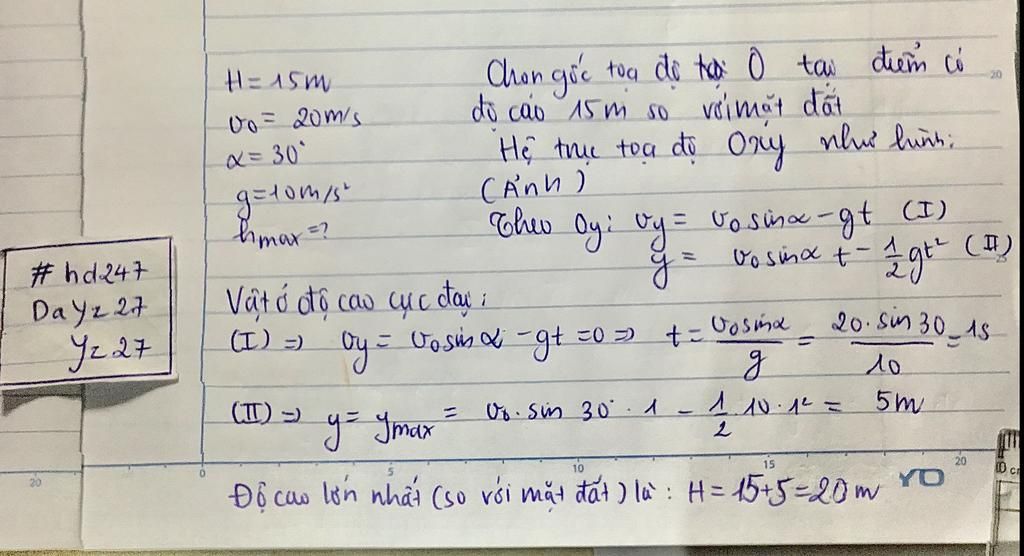 H = 15m
v₀ = 20m/s
α = 30°
g = 10m/s²
hmax = ?
Chọn gốc toạ độ O tại điểm có
độ cao 15m so với mặt đất
Hệ trục toạ độ Oxy như hình:
(Ảnh)
Theo Oy: vy = v₀ sinα - gt (I)
y = v₀ sinα t - 1/2 gt² (II)
#hd247
DaYz27
Yz27
Vật ở độ cao cực đại:
(I) => vy = v₀ sinα - gt = 0 => t = v₀ sinα / g = 20. sin 30 / 10 = 1s
(II) => y = ymax = v₀. sin 30°. 1 - 1/2 10. 1² = 5m
20
0 5 10 15 20
YO
Độ cao lớn nhất (so với mặt đất) là: H = 15+5 = 20m